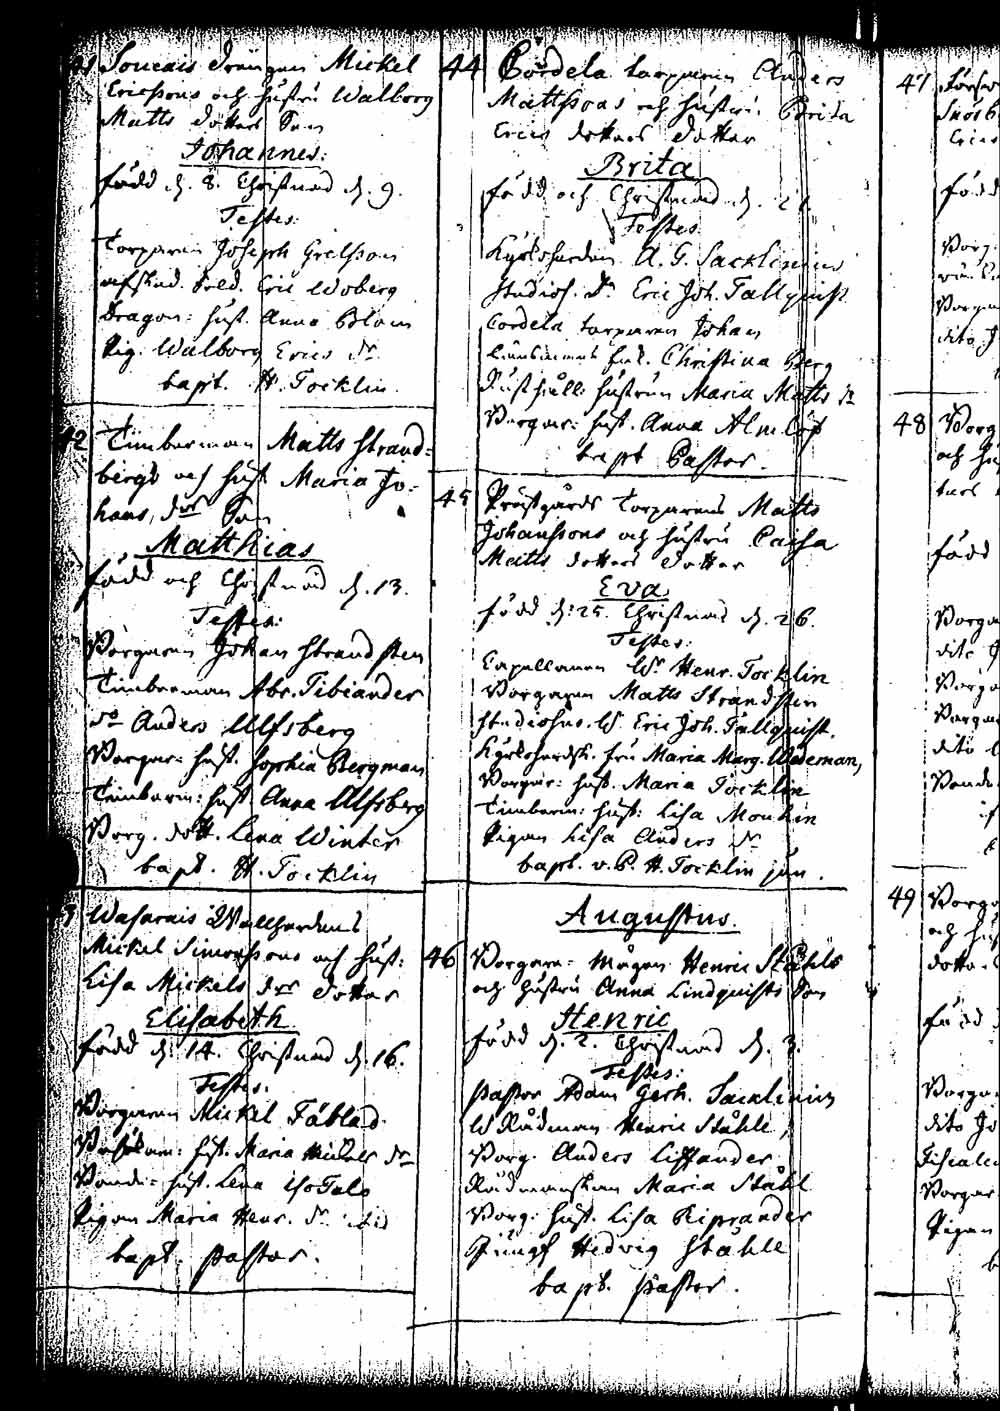 41 Soucais Drängen Mickel
Ericssons och hustru Walborg
Matts dotters Son
Johannes:
född d. 8. Christnad d. 9.
Testes:
Torparen Joseph Grelsson
afsked. Sold. Eric Woberg
Dragon: hust. Anna Blom
Pig. Walborg Erics dr
bapt. H. Tocklin
42 Timberman Matts Strand=
bergs och hust Maria Jo=
hans, dr Son
Matthias
född och Christnad d. 13.
Testes:
Borgaren Johan Strandsten
Timberman Abr. Tibiander
do Anders Ulfsberg
Borgar: hust. Sophia Bergman,
Timberm: hust Anna Ulfsberg
Borg. dott. Lena Winter
bapt. H. Tocklin
43 Wasarais Wallherdens
Mickel Simonssons och hust:
Lisa Mickels dr dotter
Elisabeth
född d. 14. Christnad d. 16.
Testes:
Borgaren Mickel Fäblad
hust: Maria Mickels dr
hust. Lena
Pigan Maria Henr. dr
bapt. pastor.
44 Cordela torparen Anders
Mattssons och hustru Brita
Erics dotters dotter
Brita
född och Christnad d. 21.
Testes
Kyrkoherden A. G. Sacklinius
Studios. Dn Eric Joh. Tallquist
Cordela torparen Johan
Christina Berg
Rusthåll: hustrun Maria Matts dr
Borgar: hust. Anna Almlöf
bapt Pastor.
45 Prästgårds Torparens Matts
Johanssons och hustru Caisa
Matts dotters dotter
Eva
född d: 25. Christnad d. 26.
Testes:
Capellanen Wr Henr. Tocklin
Borgaren Matts Strandsten
Studiosus. W. Eric Joh. Tallquist.
Kyrkoherdsk. fru Maria Marg. Wademan,
Borgar: hust. Maria Tocklin
Timberm: hust: Lisa Monkin
Pigan Lisa Anders dr
bapt. v. P. H. Tocklin jun.
Augustus.
46 Borgare= Mågen Henric Ståhls
och hustru Anna Lindquists Son
Henric
född d. 2. Christnad d. 3.
Testes:
pastor Adam Gerh. Sacklinius
W Rådman Henric Ståhle,
Borg. Anders Listander
Rådmanskan Maria Ståhl
Borg: hust. Lisa Riprander
Jungf Hedvig Ståhle
bapt. pastor.
47
Erics
född
Borg
dito J
48 Borg
och hu
född
Borga
dito J
Borga
Borgar
dito
49 Borga
och hus
dotter
född
Borga
dito Jo
Borgar
Pigan